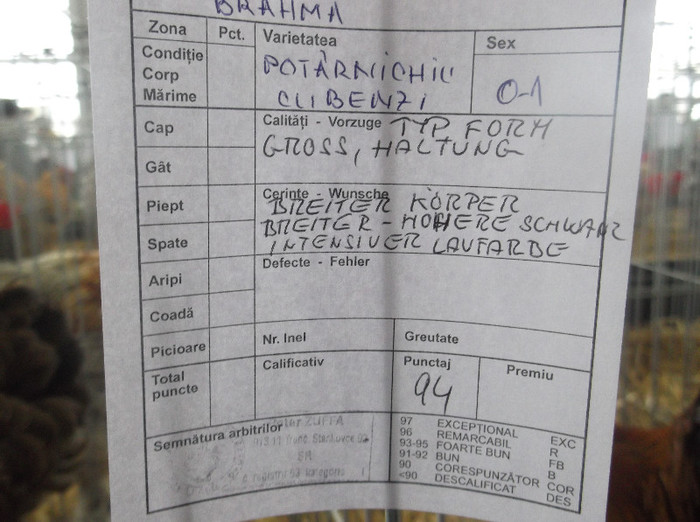 BRAHMA
Zona Pct. Varietatea Sex
Condiție
Corp
Mărime
POTÂRNICHIU
CU BENZI
0-1
Cap
Calități - Vorzuge TYP FORM
GROSS, HALTUNG
Gât
Piept
Cerințe - Wunsche
BREITER KÖRPER
BREITER - HOHERE SCHWANZ
Spate
INTENSIVER LAUFARBE
Defecte - Fehler
Aripi
Coadă
Picioare
Nr. Inel Greutate
Total
puncte
Calificativ Punctaj Premiu
94
Semnătura arbitrilor
ZUFFA
97 EXCEPȚIONAL EXC
96 REMARCABIL R
93-95 FOARTE BUN FB
91-92 BUN B
90 CORESPUNZĂTOR COR
<90 DESCALIFICAT DES